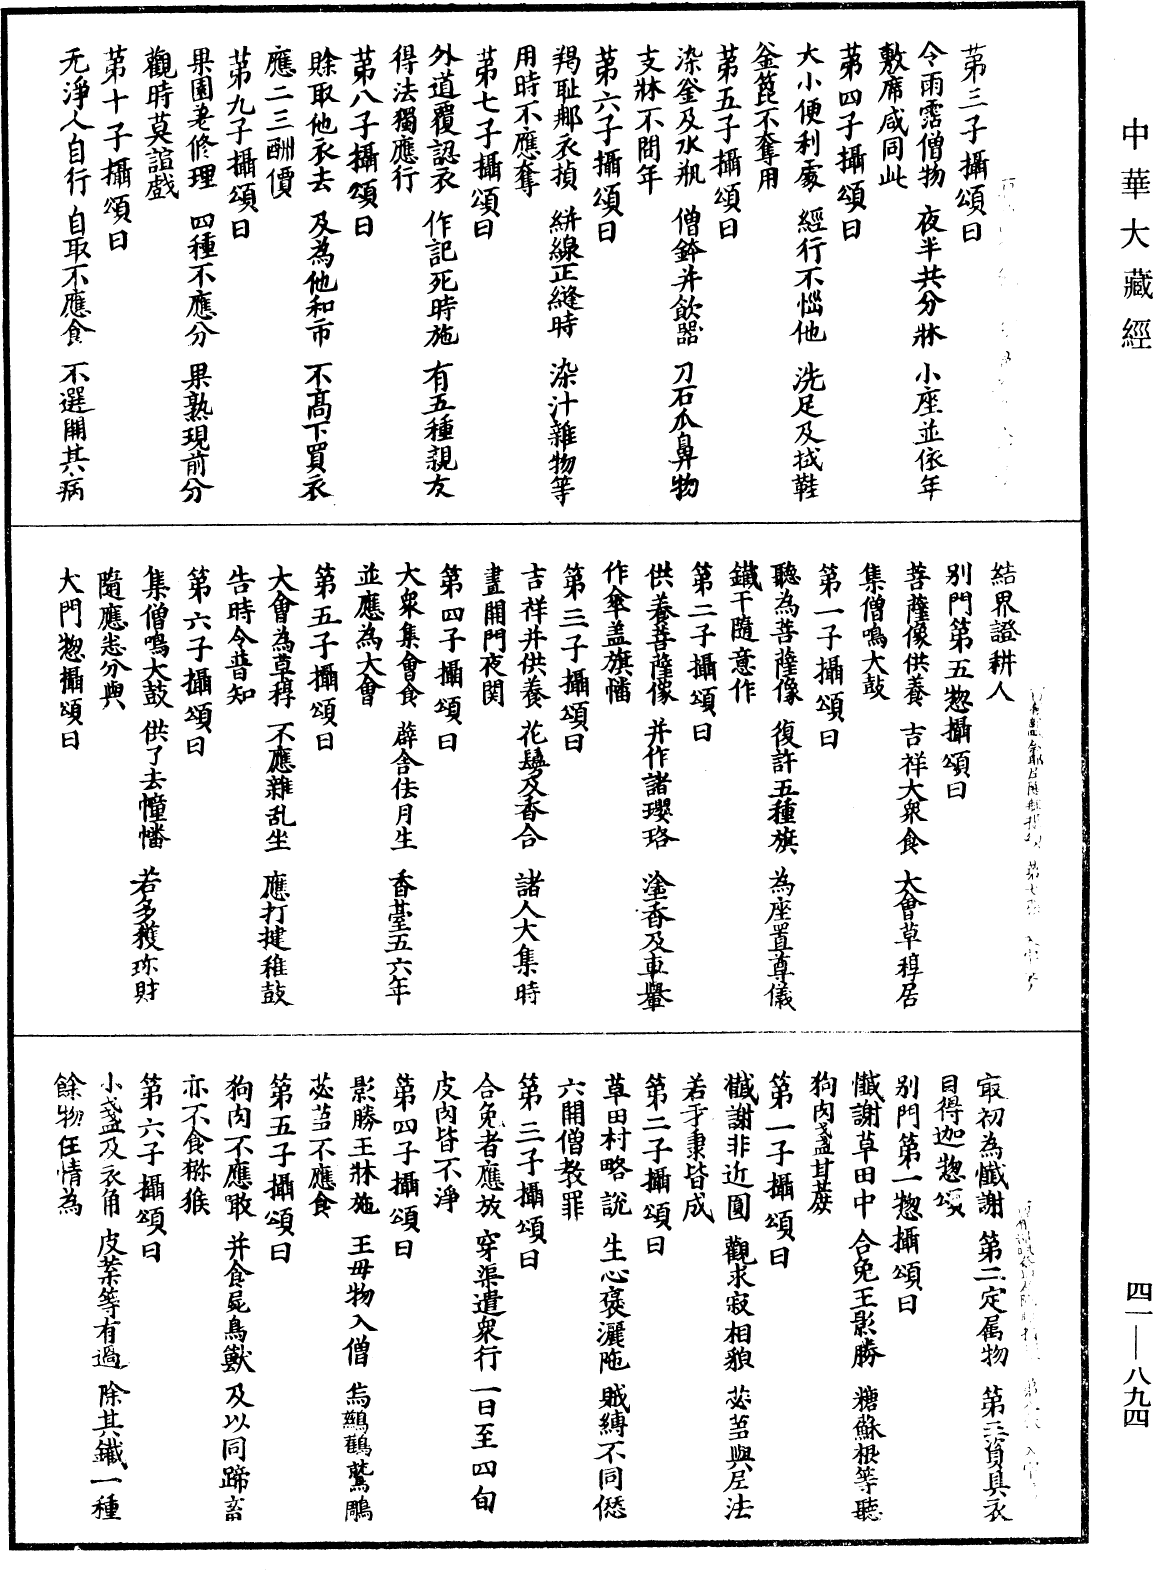 中華大藏經
第三子攝頌曰
令雨霑僧物 夜半共分牀 小座並依年
敷席咸同此
第四子攝頌曰
大小便利處 經行不惱他 洗足及拭鞋
釜篦不奪用
第五子攝頌曰
染釜及水瓶 僧鉢并飲器 刀石爪鼻物
支牀不問年
第六子攝頌曰
羯耻那衣楨 絣線正縫時 染汁雜物等
用時不應奪
第七子攝頌曰
外道覆認衣 作記死時施 有五種親友
得法獨應行
第八子攝頌曰
賒取他衣去 及為他和市 不高下買衣
應二三酬價
第九子攝頌曰
果園差修理 四種不應分 果熟現前分
觀時莫諠戲
第十子攝頌曰
无淨人自行 自取不應食 不選開其病
結界證耕人
別門第五惣攝頌曰
菩薩像供養 吉祥大衆食 大會草稕居
集僧鳴大鼓
第一子攝頌曰
聽為菩薩像 復許五種旗 為座置尊儀
鐵干隨意作
第二子攝頌曰
供養菩薩像 并作諸瓔珞 塗香及車轝
作傘盖旗幡
第三子攝頌曰
吉祥并供養 花鬘及香合 諸人大集時
晝開門夜閇
第四子攝頌曰
大衆集會食 薜舍佉月生 香臺五六年
並應為大會
第五子攝頌曰
大會為草稕 不應雜乱坐 應打揵稚鼓
告時令普知
第六子攝頌曰
集僧鳴大鼓 供了去幢幡 若多獲珎財
隨應悉分與
大門惣攝頌曰
㝡初為懺謝 第二定属物 第三資具衣
目得迦惣頌
別門第一惣攝頌曰
懺謝草田中 合免王影勝 糖酥根等聽
狗肉盞甘蔗
第一子攝頌曰
懺謝非近圓 觀求寂相貌 苾芻與尼法
若乎秉皆成
第二子攝頌曰
草田村略說 生心褒灑陁 賊縛不同愆
六開僧教罪
第三子攝頌曰
合免者應放 穿渠遣衆行 一日至四旬
皮肉皆不淨
第四子攝頌曰
影勝王牀施 王毋物入僧 烏鷀鶴鷲鵰
苾芻不應食
第五子攝頌曰
狗肉不應噉 并食屍鳥獸 及以同蹄畜
亦不食獼猴
第六子攝頌曰
小盞及衣角 皮葉等有過 除其鐵一種
餘物任情為
四一—八九四